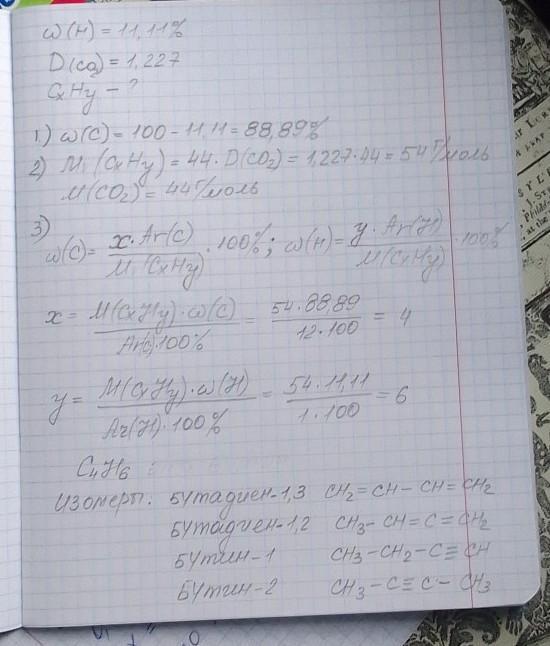 ω(H) = 11,11%
D(CO₂) = 1,227
CxHy – ?
1) ω(C) = 100 – 11,11 = 88,89%
2) M (CxHy) = 44 · D(CO₂) = 1,227 · 44 = 54 г/моль
M(CO₂) = 44 г/моль
3)
ω(C) = x · Ar(C) / M (CxHy) · 100%; ω(H) = y · Ar(H) / M(CxHy) · 100%
x = M(CxHy) · ω(C) / Ar(C) · 100% = 54 · 88,89 / 12 · 100 = 4
y = M(CxHy) · ω(H) / Ar(H) · 100% = 54 · 11,11 / 1 · 100 = 6
C₄H₆
Изомеры: Бутадиен-1,3 CH₂=CH–CH=CH₂
Бутадиен-1,2 CH₃–CH=C=CH₂
Бутин-1 CH₃–CH₂–C≡CH
Бутин-2 CH₃–C≡C–CH₃